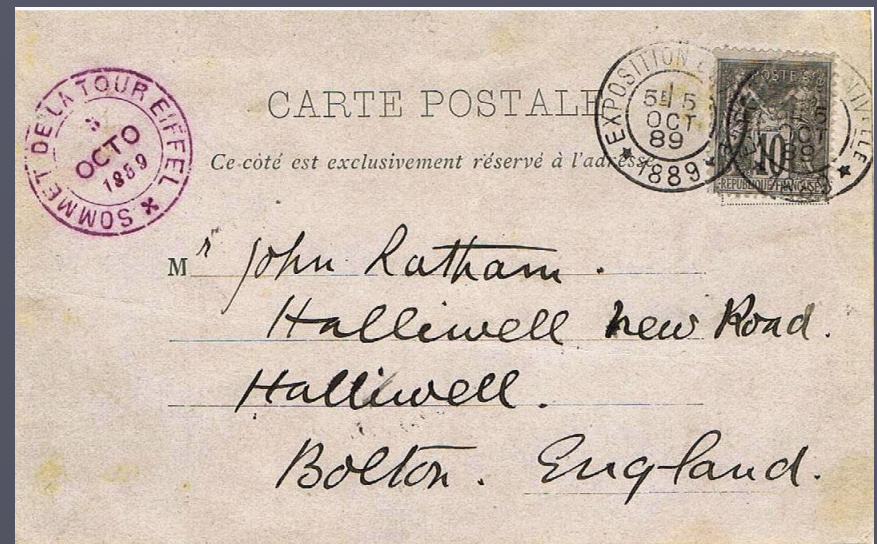 SOMMET DE LA TOUR EIFFEL
OCTO
1889
CARTE POSTALE
Ce côté est exclusivement réservé à l'adresse.
EXPOSITION
5E 5
OCT
89
1889
POSTE
OCT
89
10
REPUBLIQUE FRANÇAISE
Mr John Latham.
Halliwell New Road.
Halliwell.
Bolton. England.